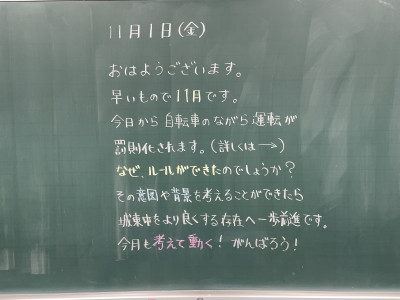 11月1日(金)
おはようございます。
早いもので11月です。
今日から自転車のながら運転が
罰則化されます。(詳しくは→)
なぜ、ルールができたのでしょうか?
その意図や背景を考えることができたら
城東中をより良くする存在へ一歩前進です。
今月も考えて動く!がんばろう!